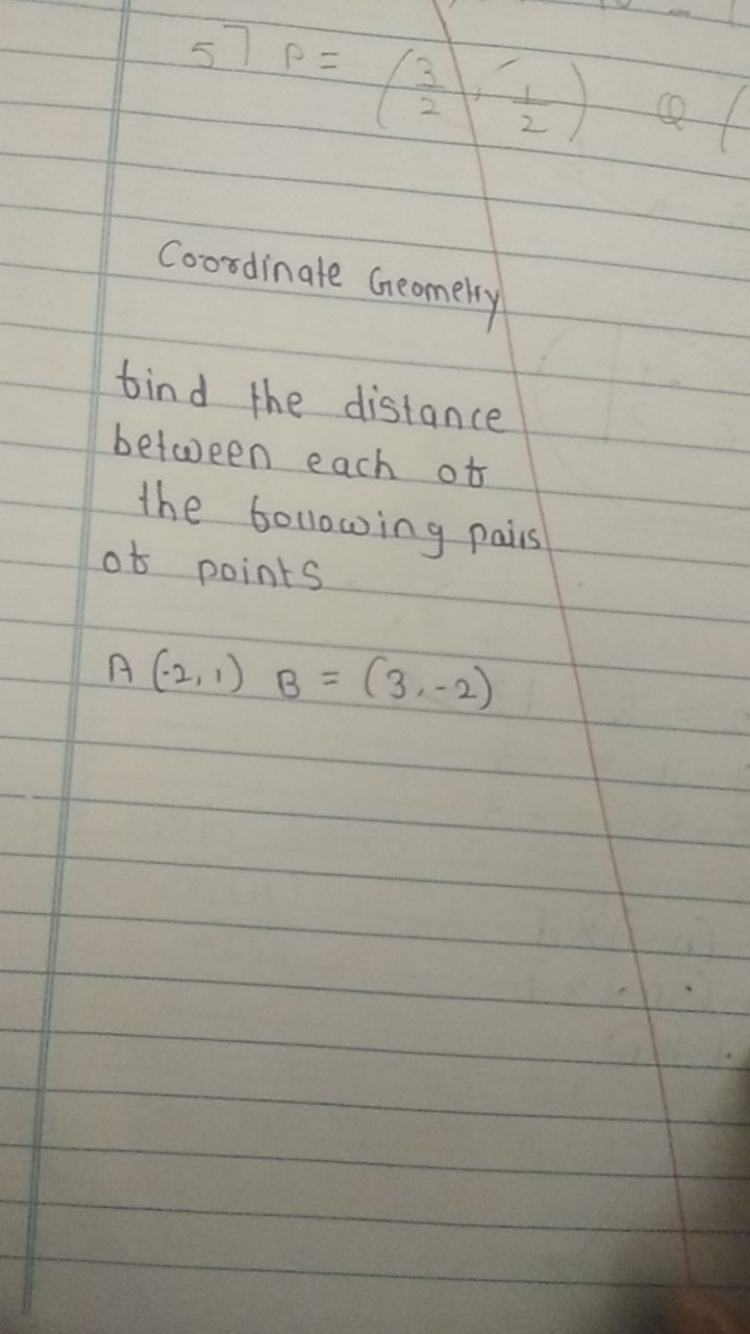 5] P = (3/2, -1/2) Q (
Coordinate Geometry
find the distance
between each of
the following pairs
of points
A (-2, 1) B = (3, -2)